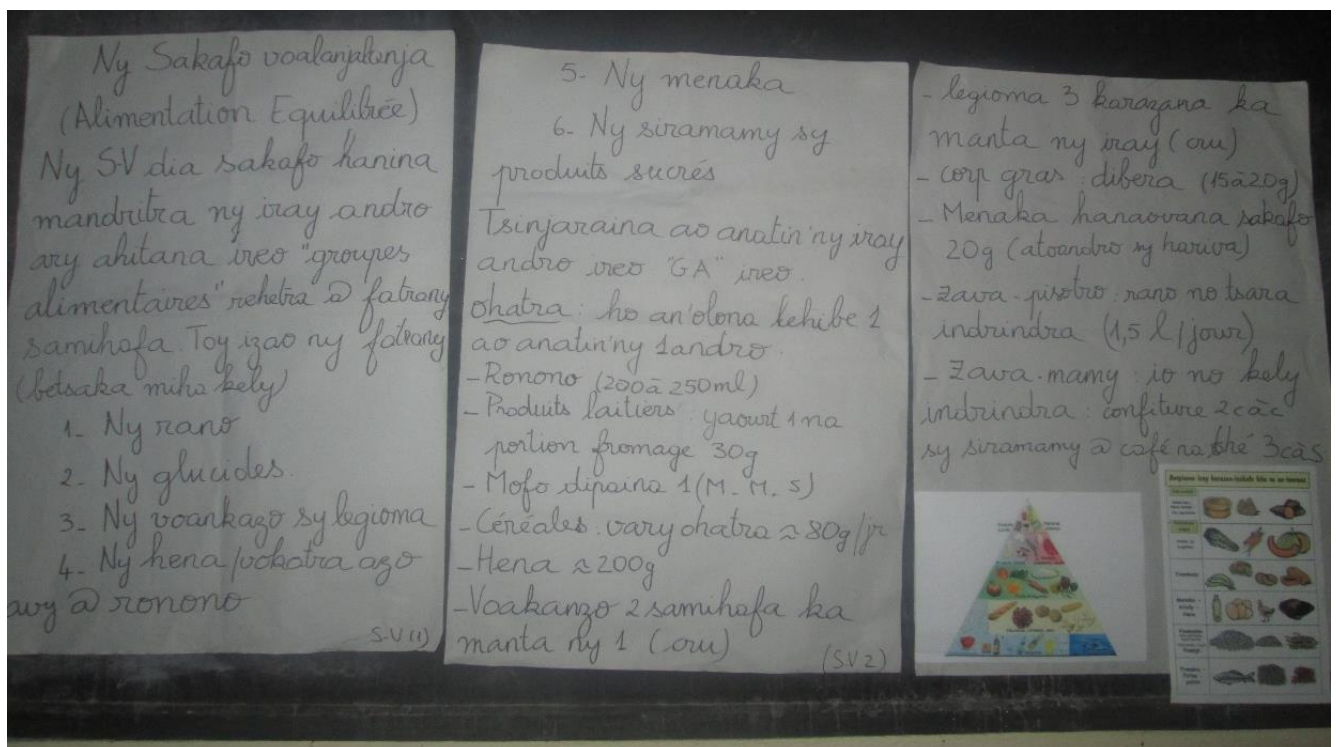 Ny Sakafo voalanjalanja
(Alimentation Equilibrée)
Ny S.V dia sakafo hanina
mandritra ny iray andro
ary ahitana ireo "groupes
alimentaires" rehetra @ fatrany
samihafa. Toy izao ny fatrany
(betsaka miha kely)
1- Ny rano
2- Ny glucides.
3- Ny voankazo sy legioma
4- Ny hena/vokatra azo
avy @ ronono
S.V (1)
5- Ny menaka
6- Ny siramamy sy
produits sucrés
Tsinjaraina ao anatin'ny iray
andro ireo "GA" ireo.
ohatra : ho an'olona lehibe 1
ao anatin'ny 1 andro.
- Ronono (200 à 250ml)
- Produits laitiers : yaourt 1 na
portion fromage 30g
- Mofo dipaina 1 (M. M. S)
- Céréales : vary ohatra ≈ 80g/jr
- Hena ≈ 200g
- Voakanzo 2 samihafa ka
manta ny 1 (cru)
(S.V 2)
- legioma 3 karazana ka
manta ny iray (cru)
- corp gras : dibera (15 à 20g)
- Menaka hanaovana sakafo
20g (atoandro sy hariva)
- Zava-pisotro : rano no tsara
indrindra (1,5 l/jour)
- Zava-mamy : io no kely
indrindra : confiture 2 càc
sy siramamy @ café na thé 3 càs